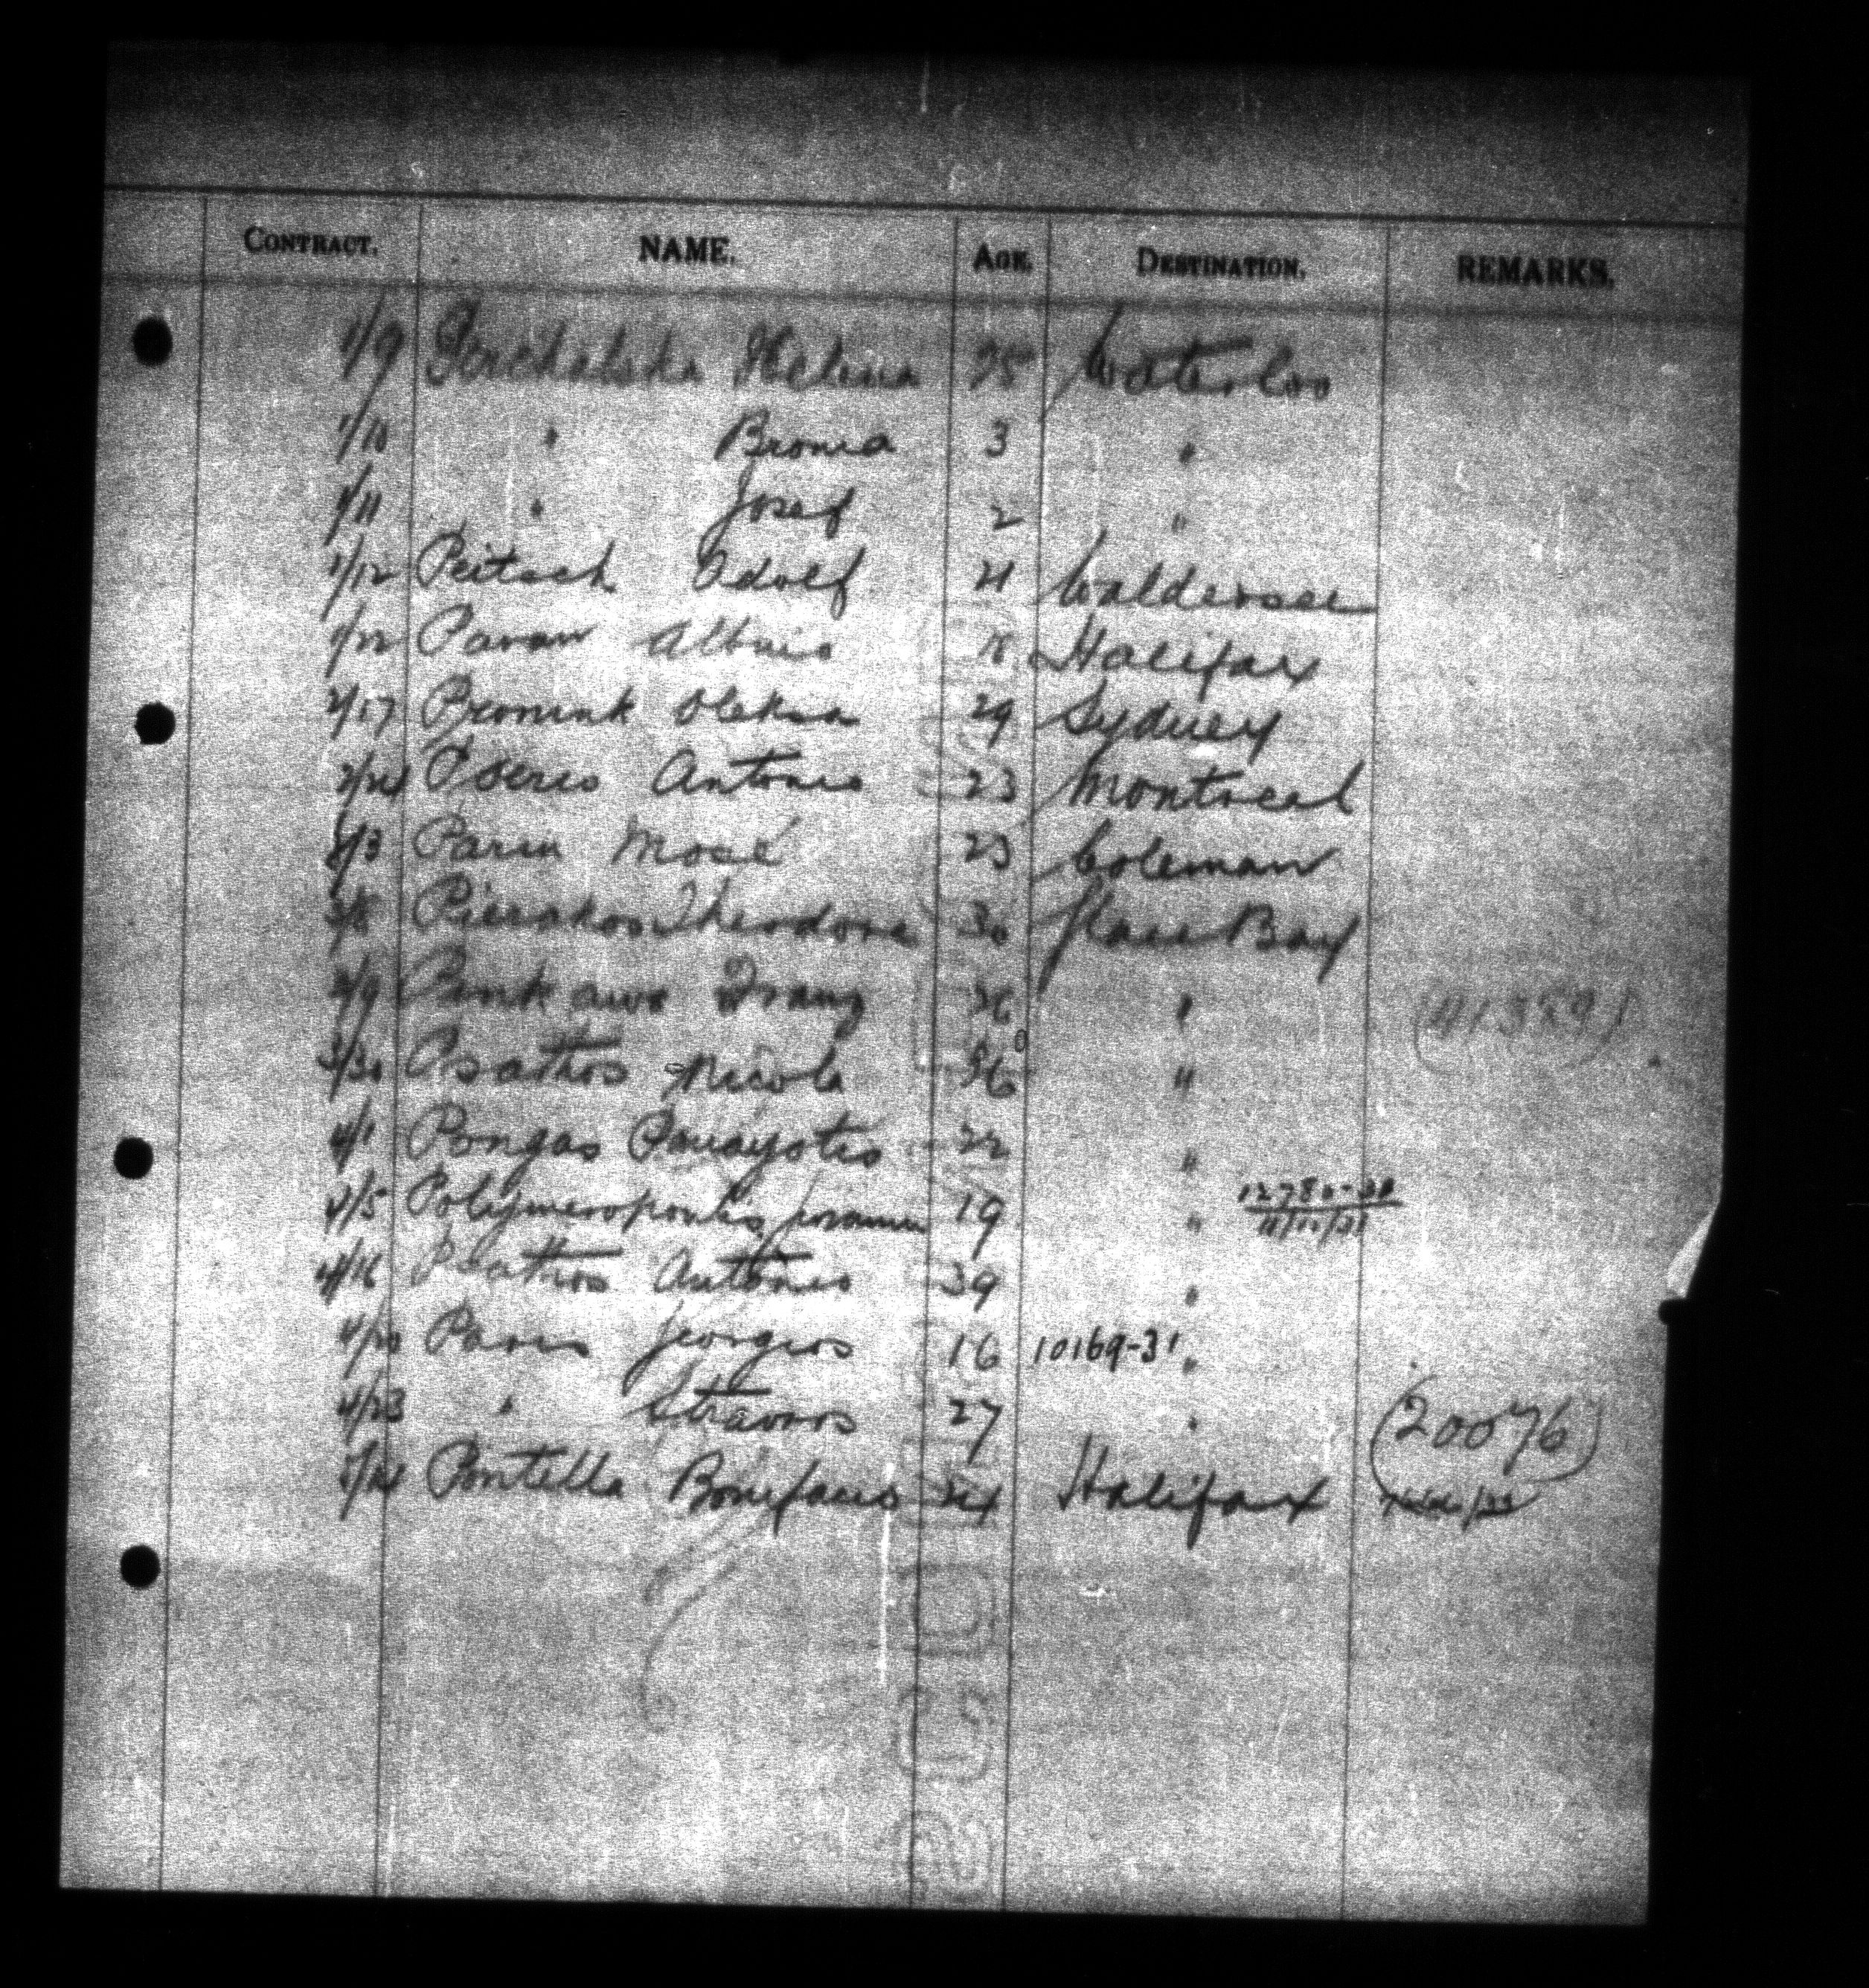 CONTRACT. NAME. AGE. DESTINATION. REMARKS.
1/9 Helena 25 Waterloo
1/10 " Bronia 3 "
1/11 " Josef 2 "
1/12 Peitsch Adolf 21 Waldersee
1/22 Pavan Albino 18 Halifax
2/17 Oleksa 29 Sydney
2/24 Pseres Antonio 23 Montreal
3 Parin Mosé 23 Coleman
3/8 Pierrakos Theodora 30 Glace Bay
3/9 Franz 36 "
3/30 Psathos Nicola 36 "
4/1 Pongas Panayotis 22 "
4/5 19 " 12780-31
11/12/31
4/16 Psathos Antonio 39 "
4/20 Paris Georgios 16 10169-31 "
4/23 " Stravros 27 " (20076)
Pontella Bonifacio 24 Halifax